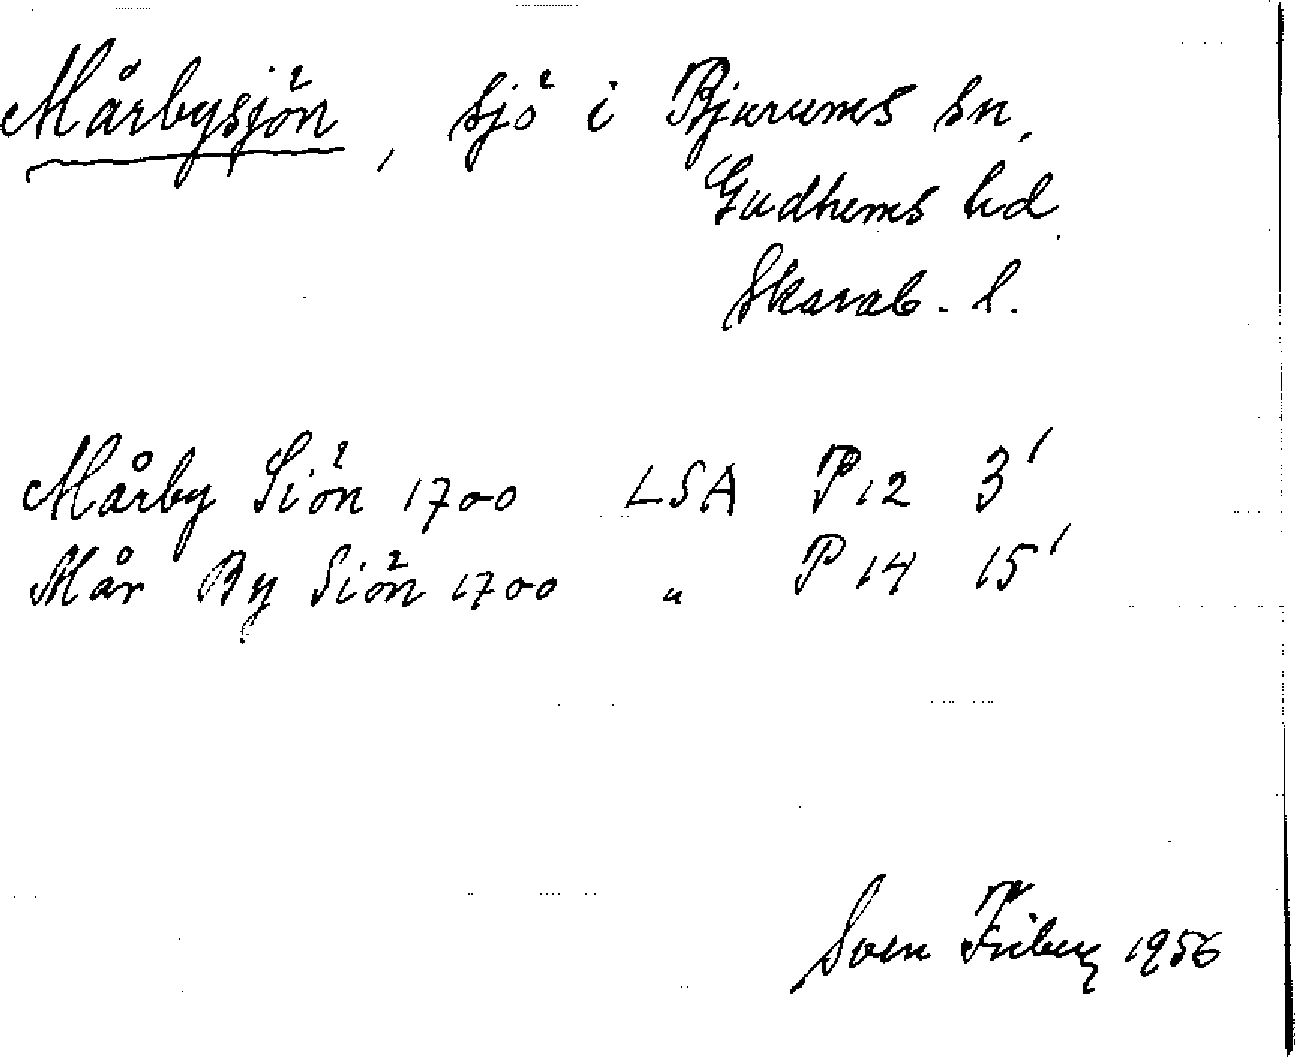 Mårbysjön, sjö i Bjurums sn,
Gudhems hd
Skarab. l.
Mårby Siön 1700 LSA P12 3'
Mår By Siön 1700 " P14 15'
Sven Friberg 1956